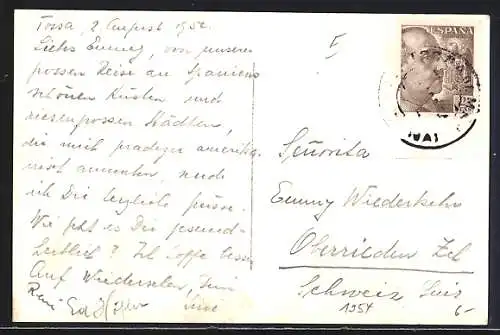 Tossa, 2 August 1954.
Liebs Emmy, von unserer
grossen Reise an Spaniens
schönen Küsten und
riesengrossen Städten,
die mich
ich Dir herzliche Grüsse.
Wie geht es Dir gesund-
heitlich? Ich hoffe besser
Auf Wiedersehen, Dini
ESPAÑA
Señorita
Emmy Wiederkehr
Oberrieden Zch
Schweiz Suis
1954
6-